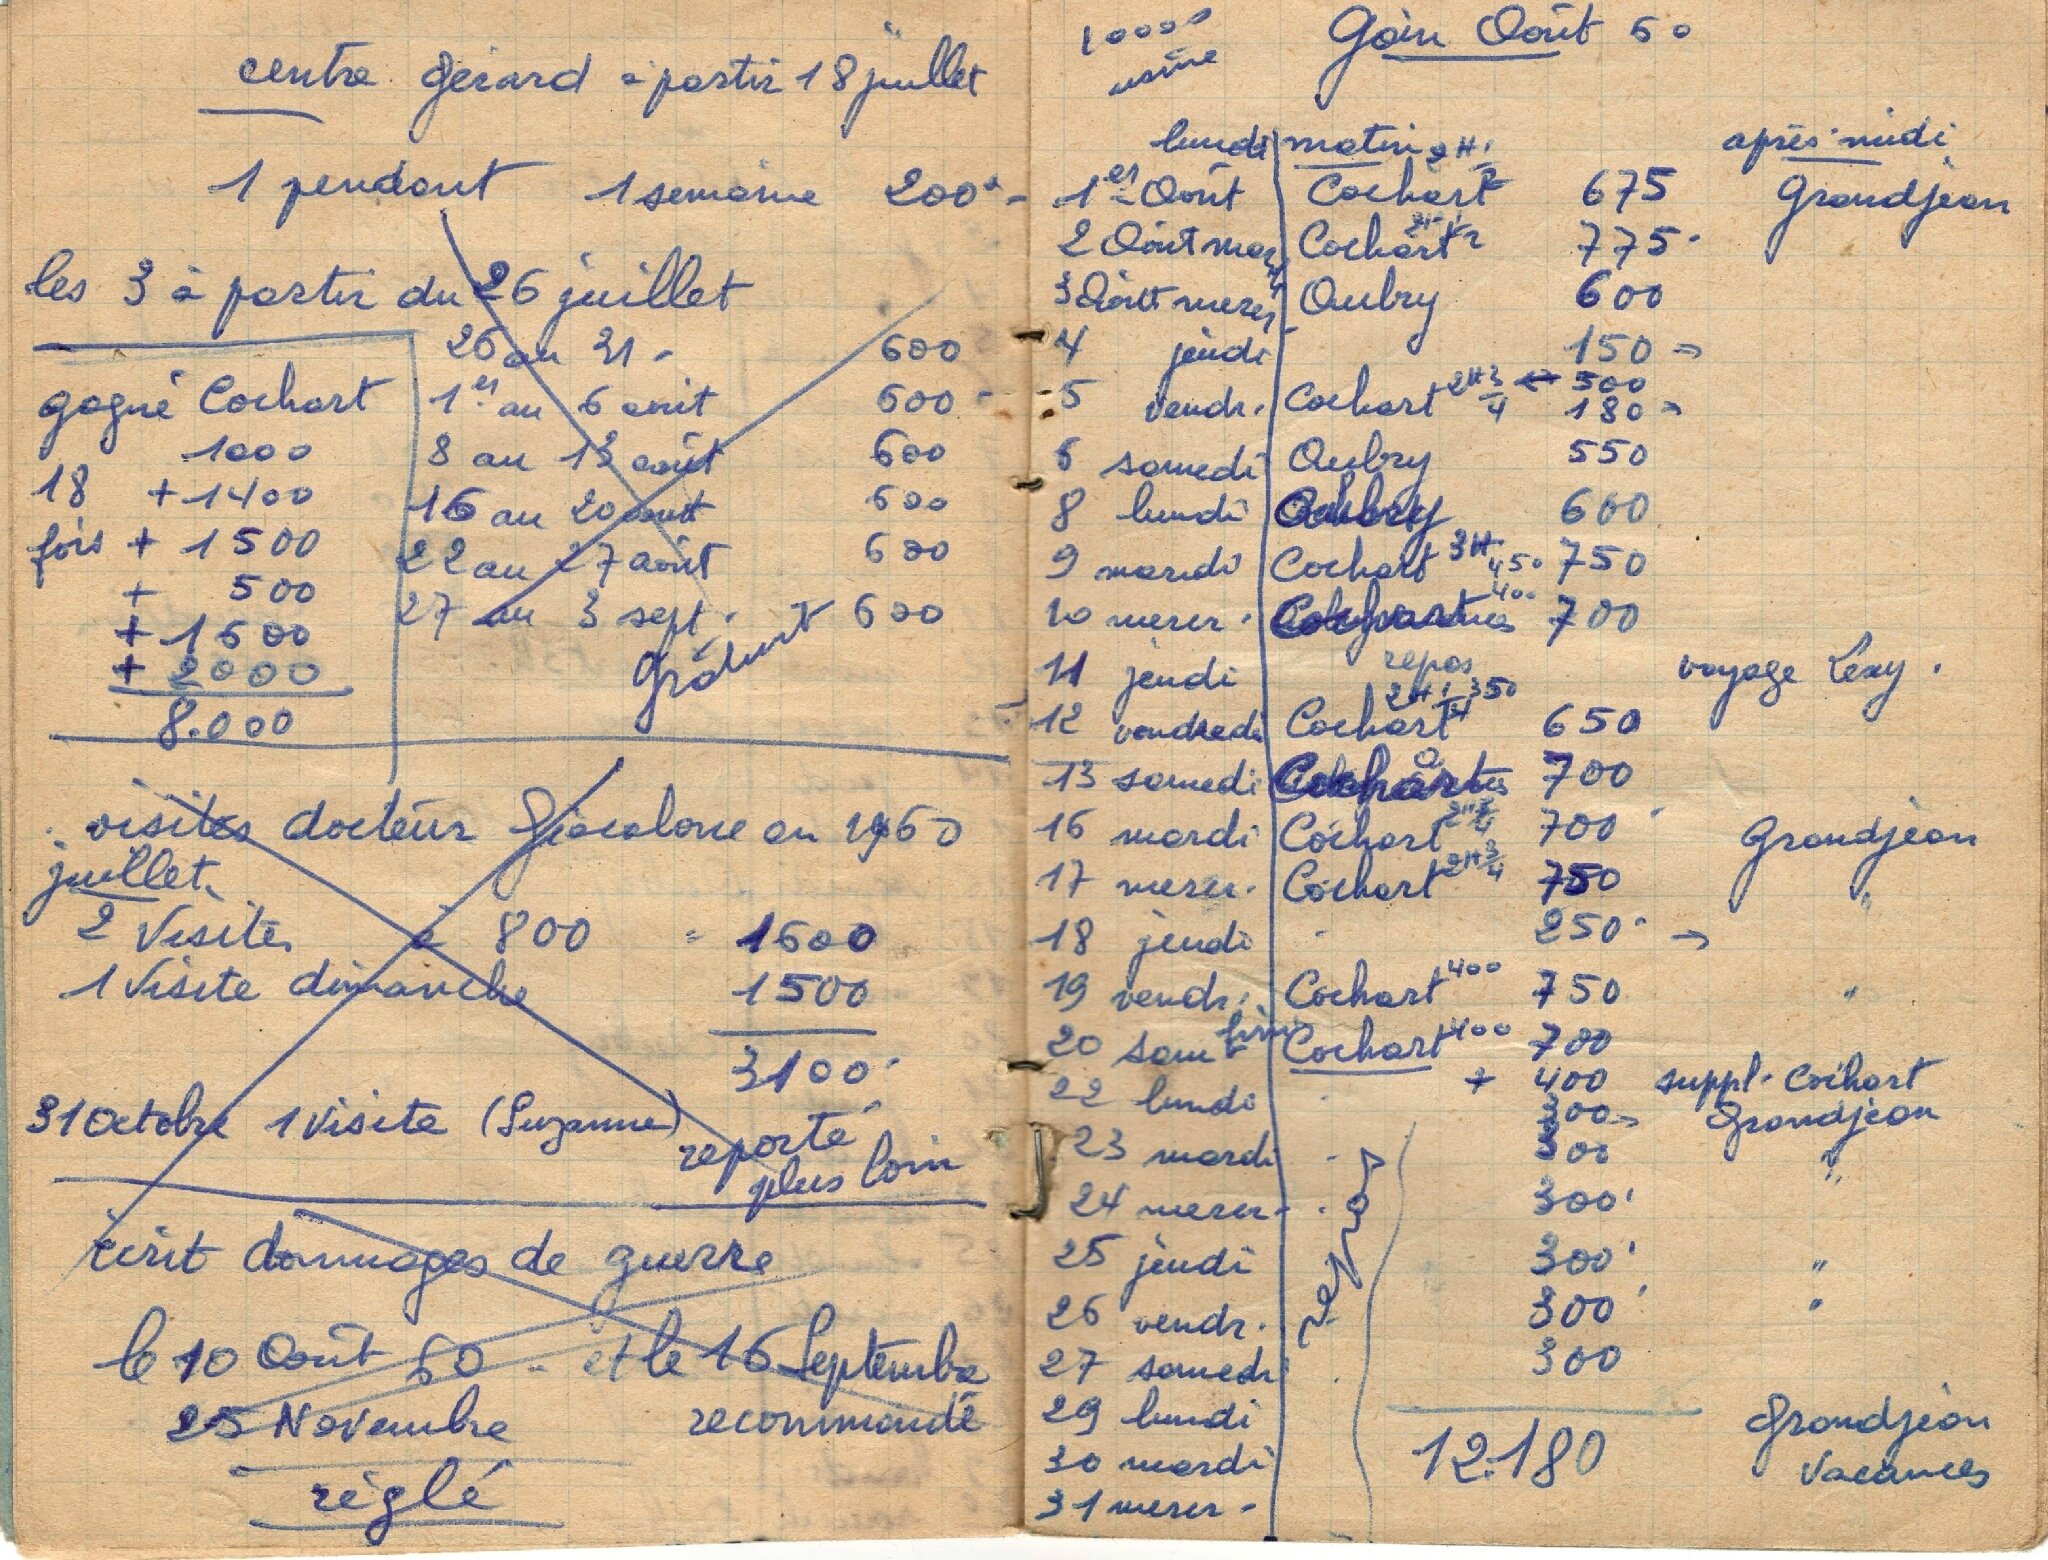 centre gérard à partir 18 juillet
1 pendant 1 semaine 200 -
les 3 à partir du 26 juillet
26 au 31 - 600
1er au 6 août 600 -
8 au 13 août 600
16 au 20 août 600
22 au 27 août 600
27 au 3 sept. 600
gratuit
gagné Cochart
1000
18 + 1400
fois + 1500
+ 500
+ 1600
+ 2000
8.000
visites docteur en 1960
juillet.
2 Visites à 800 = 1600
1 Visite dimanche 1500
3100
31 Octobre 1 Visite (Suzanne) reporté
plus loin
écrit dommages de guerre
le 10 Août 60 - et le 16 Septembre
25 Novembre recommandé
réglé
10000 Gain Août 60
usine
lundi matin après-midi
1er Août Cochart 2H 1/2 675 Grandjean
2 Août mar Cochart 2H 1/2 775
3 Août merc Aubry 600
4 jeudi 150
5 vendr. Cochart 2H 3/4 500
180
6 samedi Aubry 550
8 lundi Aubry 600
9 mardi Cochart 3H 450 750
10 mercr. 400 700
11 jeudi repos voyage Lexy.
12 vendredi Cochart 2H 1/4 350 650
13 samedi 700
16 mardi Cochart 2H 3/4 700 Grandjean
17 mercr. Cochart 2H 3/4 750 "
18 jeudi 250
19 vendr. Cochart 400 750 "
20 sam fini Cochart 400 700
+ 400 suppl. Cochart
22 lundi 300 Grandjean
23 mardi 300 "
24 mercr. 300
25 jeudi 300 "
26 vendr. 300 "
27 samedi 300
repos
29 lundi 12.180 Grandjean
30 mardi Vacances
31 mercr.